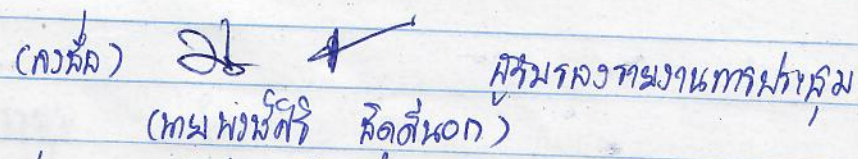 (ลงชื่อ) ผู้รับรองรายงานการประชุม
(นายพงษ์ศิริ